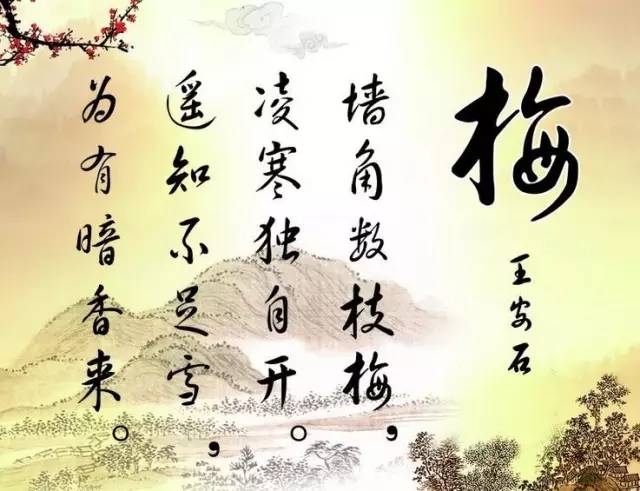 梅
王安石
墙角数枝梅，
凌寒独自开。
遥知不是雪，
为有暗香来。